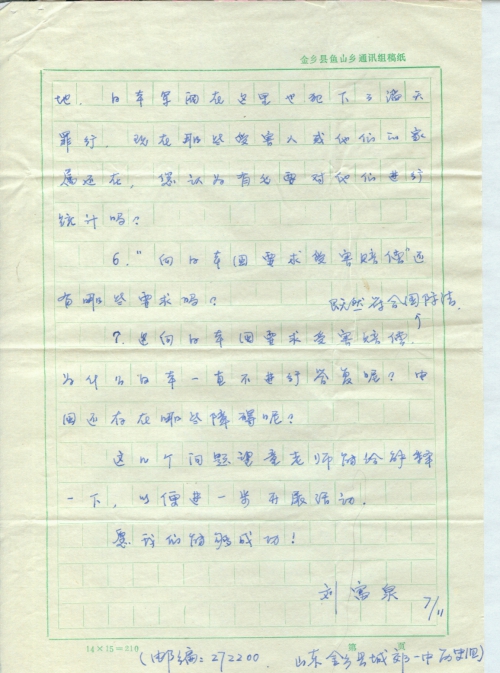 金乡县鱼山乡通讯组稿纸
地．日本军国在这里也犯下了滔天
罪行．现在那些受害人或他们的家
属还在，您认为有必要对他们进行
统计吗？
6．“向日本国要求受害赔偿”还
有哪些要求吗？
既然符合国际法，
7．这向日本国要求受害赔偿．
为什么日本一直不进行答复呢？中
国还存在哪些障碍呢？
这几个问题望童老师能给解释
一下，以便进一步开展活动．
愿我们能够成功！
刘富泉 7/11
14×15=210 第 页
（邮编：272200 山东金乡县城郊一中历史组）